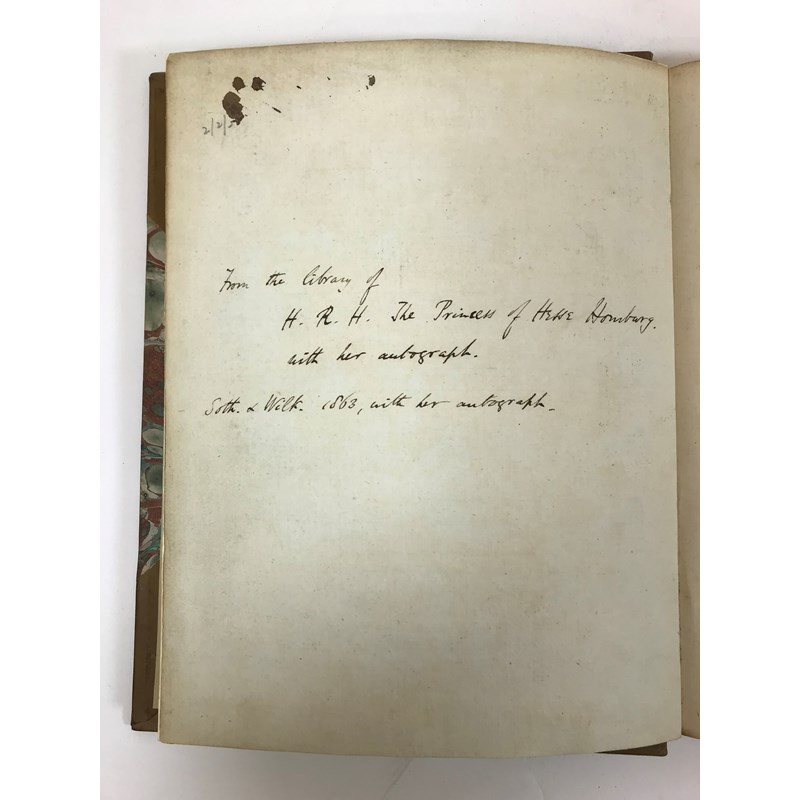 2/2/
From the library of
H. R. H. The Princess of Hesse Homburg.
with her autograph.
Soth. & Wilk. 1863, with her autograph.